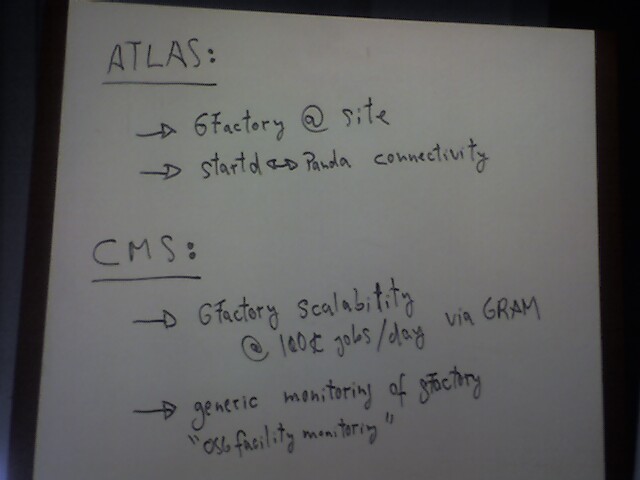 ATLAS:
→ GFactory @ site
→ startd ↔ Panda connectivity
CMS:
→ GFactory scalability
@ 100k jobs/day via GRAM
→ generic monitoring of gfactory
"OSG facility monitoring"